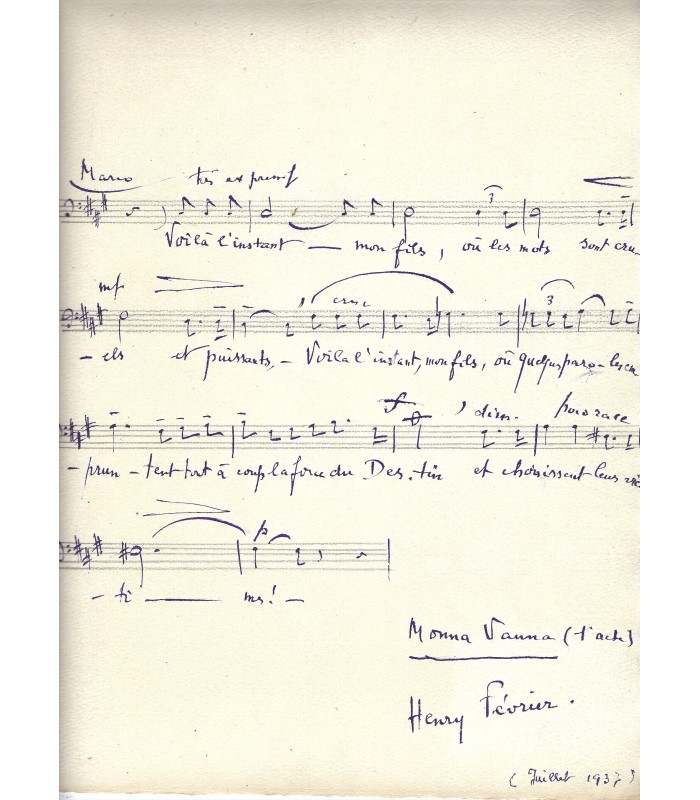 Marco très expressif
3
Voilà l'instant — mon fils, où les mots sont cru-
mf cresc 3
- els et puissants, - Voilà l'instant, mon fils, où quelques paro-les em
f dim. poco rall
- prun - tent tout à coup la force du Des.tin et choisissent leurs vic
p
- ti — mes! -
Monna Vanna (1er acte)
Henry Février.
(Juillet 1937)